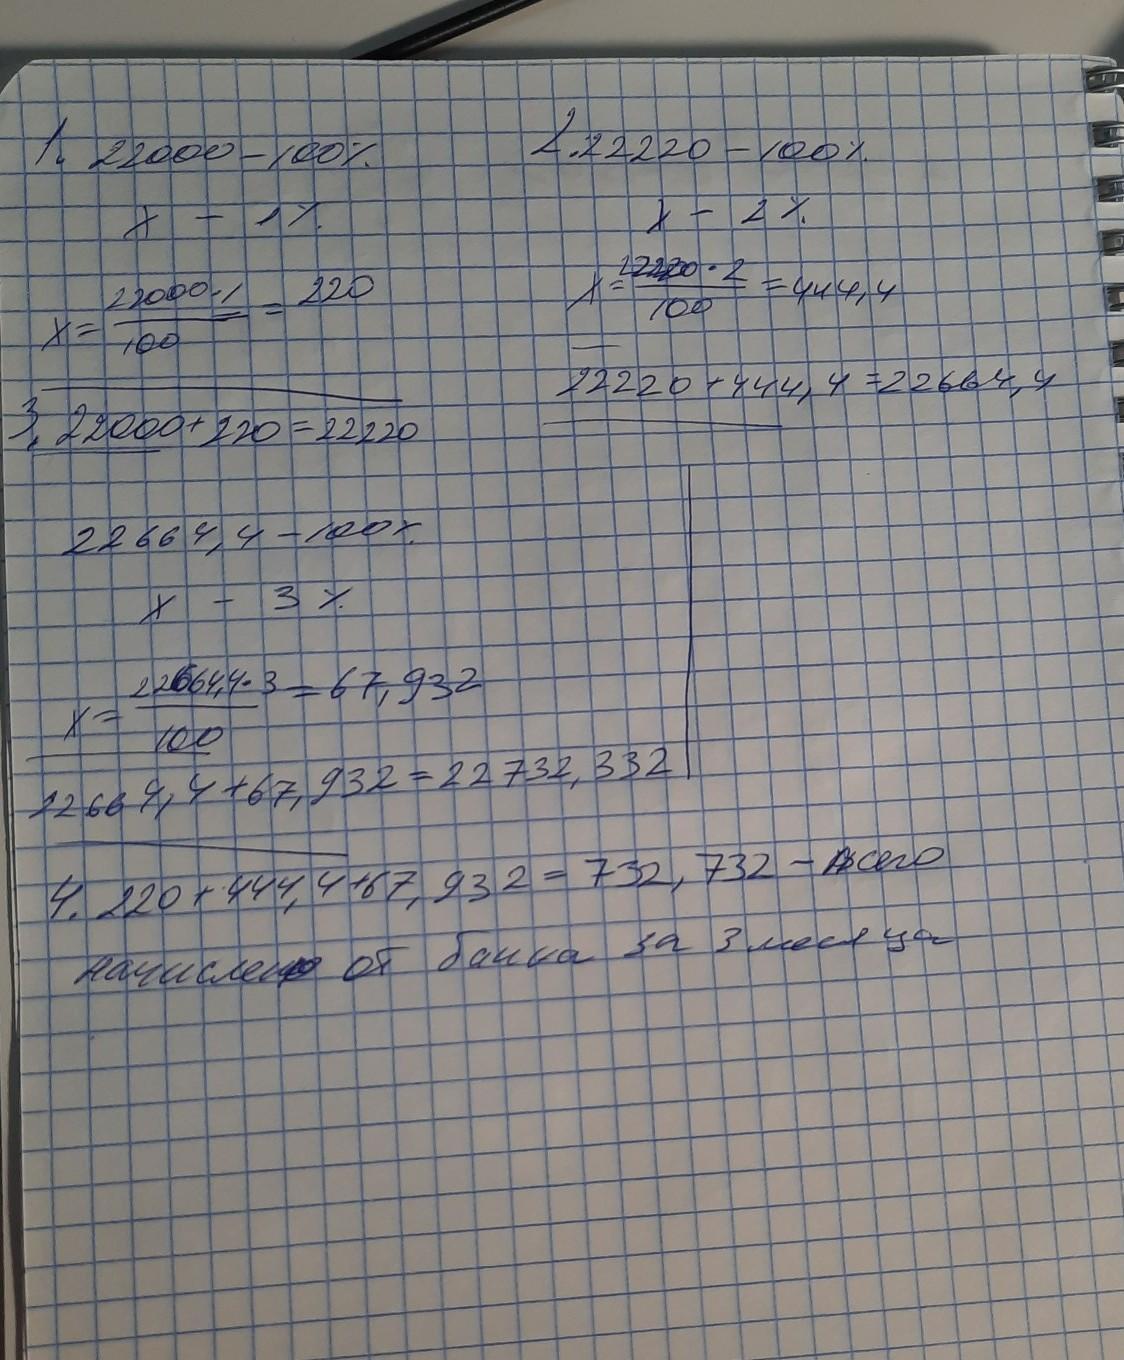 1. 22000 - 100%
x - 1%
x = 22000·1 / 100 = 220
3. 22000 + 220 = 22220
2. 22220 - 100%
x - 2%
x = 22220·2 / 100 = 444,4
22220 + 444,4 = 22664,4
22664,4 - 100%
x - 3%
x = 22664,4·3 / 100 = 67,932
22664,4 + 67,932 = 22732,332
4. 220 + 444,4 + 67,932 = 732,732 - всего
начислено от банка за 3 месяца